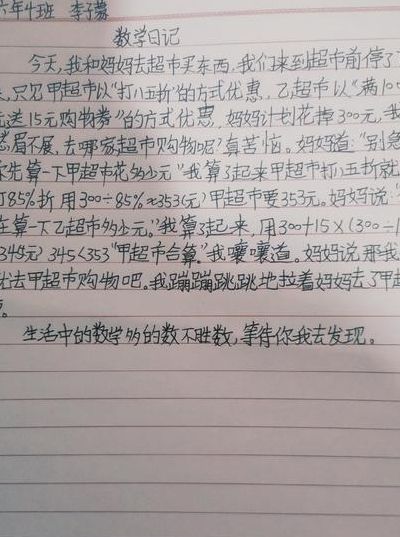 六年4班 李子蒙
数学日记
今天,我和妈妈去超市买东西,我们来到超市前停了
,只见甲超市以“打八五折”的方式优惠,乙超市以“满10
送15元购物券”的方式优惠,妈妈计划花掉300元,我
眉不展,去哪家超市购物呢?真苦恼。妈妈道:“别急
先算一下甲超市花多少元”我算了起来甲超市打八五折就
85%折用300÷85%≈353(元)甲超市要353元。妈妈说
在算一下乙超市多少元。”我算了起来,用300+15×(300÷1
345元) 345<353“甲超市合算。”我嚷嚷道。妈妈说那我
去甲超市购物吧。我蹦蹦跳跳地拉着妈妈去了甲超
。
生活中的数学多的数不胜数,等待你我去发现。